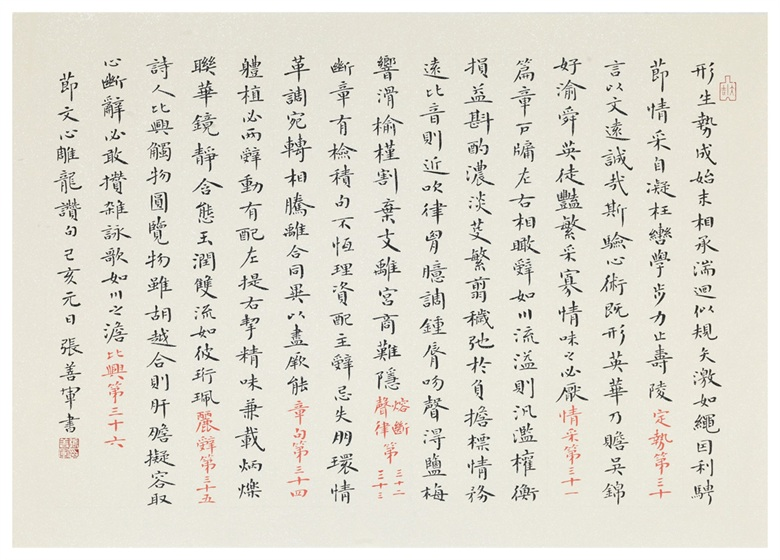 形生勢成始末相承湍迴似規矢激如繩因利騁
節情采自凝枉轡學步力止壽陵定勢第三十
言以文遠誠哉斯驗心術既形英華乃贍吳錦
好渝舜英徒豔繁采寡情味之必厭情采第三十一
篇章戶牖左右相瞰辭如川流溢則汎濫權衡
損益斟酌濃淡芟繁翦穢弛於負擔標情務
遠比音則近吹律胷臆調鍾脣吻聲得鹽梅
響滑榆槿割棄支離宮商難隱熔斷聲律第三十二三十三
斷章有檢積句不恆理資配主辭忌失朋環情
革調宛轉相騰離合同異以盡厥能章句第三十四
體植必兩辭動有配左提右挈精味兼載炳爍
聯華鏡靜含態玉潤雙流如彼珩珮麗辭第三十五
詩人比興觸物圓覽物雖胡越合則肝膽擬容取
心斷辭必敢攢雜詠歌如川之澹比興第三十六
節文心雕龍讚句己亥元日張善軍書